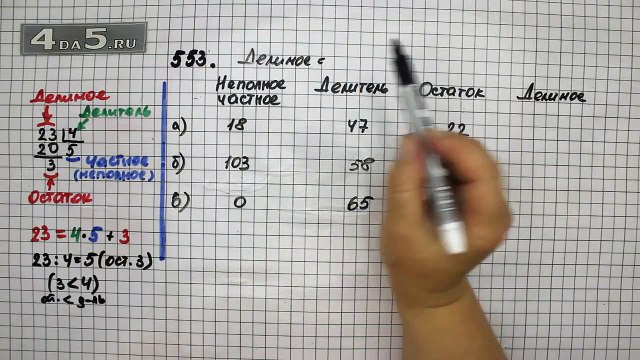 4DA5.RU
553. Делимое =
Неполное частное Делитель Остаток Делимое
а) 18 47 22
б) 103 58
в) 0 65
Делимое
Делитель
23 4
20 5
3
частное
(неполное)
Остаток
23 = 4·5 + 3
23 : 4 = 5 (ост. 3)
(3 < 4)
ост. < д-ль